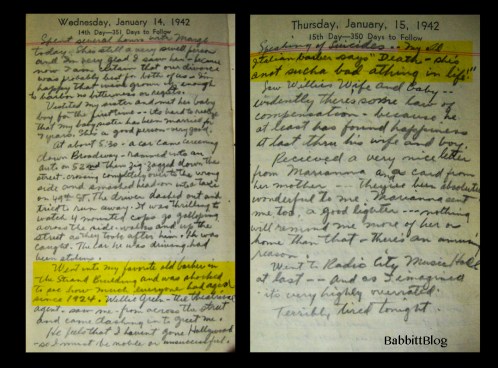 Wednesday, January 14, 1942
14th Day—351 Days to Follow
Spent several hours with Marge
today. She's still a very swell person
and I'm very glad I saw her - because
now I am certain that our divorce
was probably best for both of us. I'm
happy that we're grown-up enough
to harbor no bitterness or regrets.
Visited my sister and met her baby
boy for the first time - it's hard to realize
that my baby mate has been married for
7 years. She's a good person - very good.
At about 5:30 - a car came careening
down Broadway - rammed into an
auto on 52nd then zig-zagged down the
street crossing completely over to the wrong
side and smashed head on into a taxi
on 49th St. The driver dashed out and
tried to run away. It was thrilling to
watch 4 mounted cops go galloping
across the side-walks and up the
street as they took after him. He was
caught. The car he was driving had
been stolen.
Went into my favorite old barber in
the Strand Building and was shocked
to see how much everyone had aged
since 1924. Willie - the theatrical
agent - saw me from across the street
and came dashing up to greet me.
He feels that I haven't gone Hollywood
- so I must be modest or unsuccessful.
Thursday, January, 15, 1942
15th Day—350 Days to Follow
Speaking of Suicides - my old
Italian barber says "Death - she's
not sucha bad athing in life!"
Saw Willie's Wife and baby -
evidently there's some law of
compensation - because he
at least has found happiness
at last thru his wife and boy.
Received a very nice letter
from Marianna and a card from
her mother - they've been absolutely
wonderful to me. Marianna sent
me too, a good lighter - nothing
will remind me more of her or
home than that - there's an amusing
reason.
Went to Radio City Music Hall
at last - and as I imagined
its very highly overrated.
Terribly tired tonight.
BabbittBlog